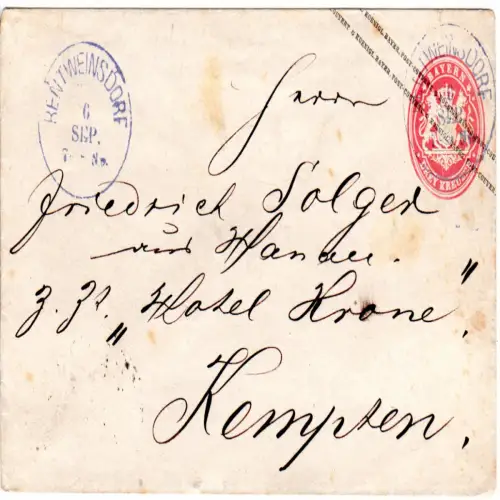 RENTWEINSDORF
6
SEP.
BAYERN
DREY KREUZER
Herrn
Friedrich Solger
aus Hanau.
z. Zt. „Hotel Krone“,
Kempten,